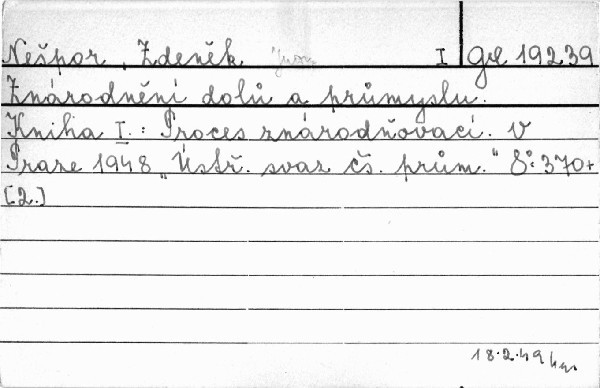 Nešpor, Zdeněk I
Znárodnění dolů a průmyslu.
Kniha I.: Proces znárodňovací. V
Praze 1948 „Ústř. svaz čs. prům.“ 8°: 370+
[2.]
18.2.49